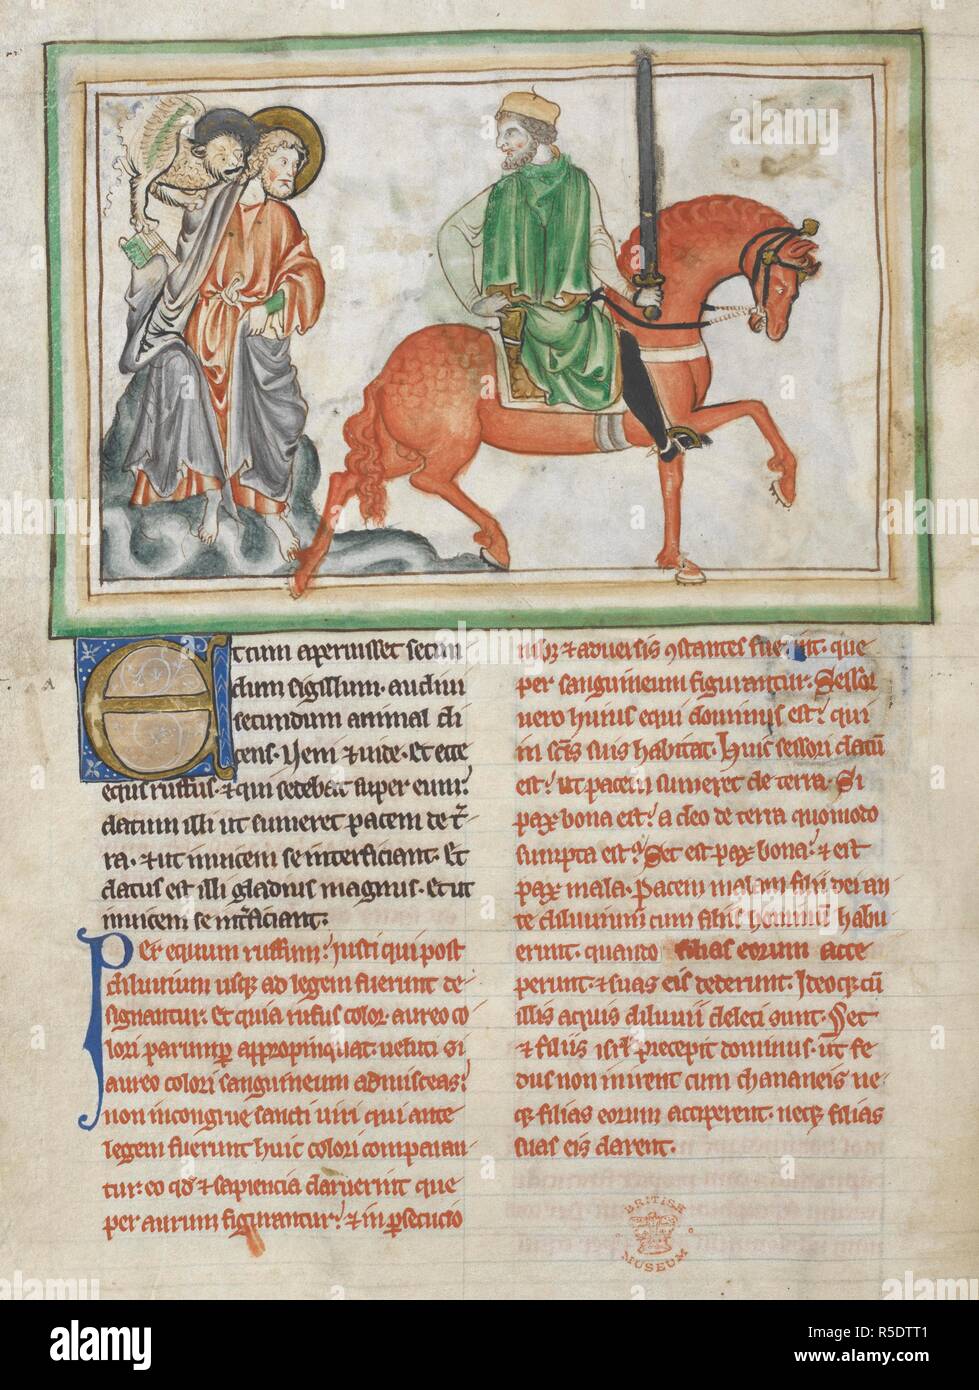 Et cum aperuisset secun
dum sigillum. audiui
secundum animal di
cens. Veni & uide. Et ecce
equs ruffus. & qui sedebat super eum.
datum illi ut sumeret pacem de t̄r
ra. & ut inuicem se interficiant. Et
datus est illi gladius magnus. et ut
inuicem se int̄ficiant.
Per equum ruffum. iusti qui post
diluuium usq; ad legem fuerunt de
signantur. et quia rufus color. aureo co
lori parump̄ appropinquat. ueluti si
aureo colori sanguineum admisceas.
non incongrue sancti uiri qui ante
legem fuerunt huic colori comparan
tur. eo qd̄ & sapiencia claruerint que
per aurum figurantur. & in p̄secucio
nib; & aduersis ꝯstantes fuerint. que
per sanguineum figurantur. Sessor
uero huius equi dominus est. qui
in sc̄is suis habitat. Huic sessori datū
est. ut pacem sumeret de terra. Si
pax bona est. a deo de terra quomodo
sumpta est. Set est pax bona. & est
pax mala. Pacem malam filii dei an
te diluuium cum filiis hominū habu
erunt. quando filias eorum acce
perunt. & suas eis dederunt. Ideoq; cū
illis aquis diluuii deleti sunt. Set
& filiis isrl̄ precepit dominus. ut fe
dus non inirent cum chananeis ne
q; filias eorum acciperent. neq; filias
suas eis darent.
BRITISH
MUSEUM
a
alamy
alamy
Image ID: R5DTT1
www.alamy.com